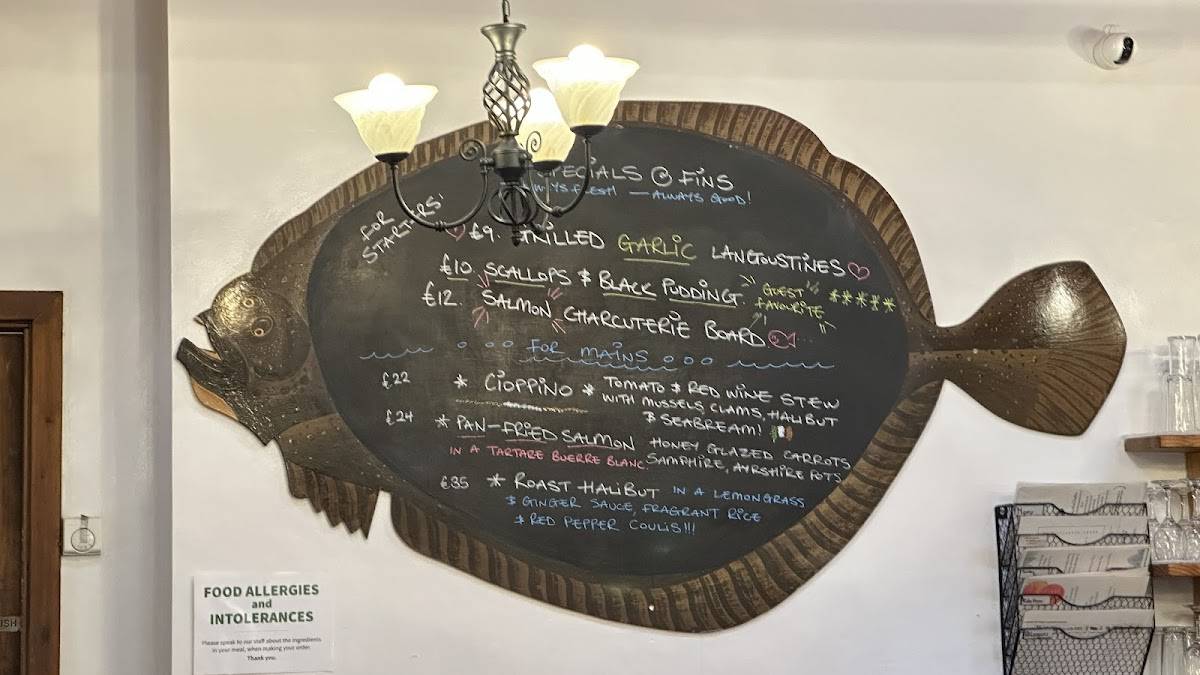 SPECIALS @ FINS
FRESH — ALWAYS GOOD!
FOR
STARTERS'
£9. GRILLED GARLIC LANGOUSTINES
£10. SCALLOPS & BLACK PUDDING. GUEST FAVOURITE *****
£12. SALMON CHARCUTERIE BOARD
FOR MAINS
£22 * CIOPPINO * TOMATO & RED WINE STEW
WITH MUSSELS, CLAMS, HALIBUT
& SEABREAM!
£24 * PAN-FRIED SALMON HONEY GLAZED CARROTS
IN A TARTARE BUERRE BLANC. SAMPHIRE, AYRSHIRE POTS
£35 * ROAST HALIBUT IN A LEMONGRASS
& GINGER SAUCE, FRAGRANT RICE
& RED PEPPER COULIS!!!
FOOD ALLERGIES
and
INTOLERANCES
Please speak to our staff about the ingredients
in your meal, when making your order.
Thank you.